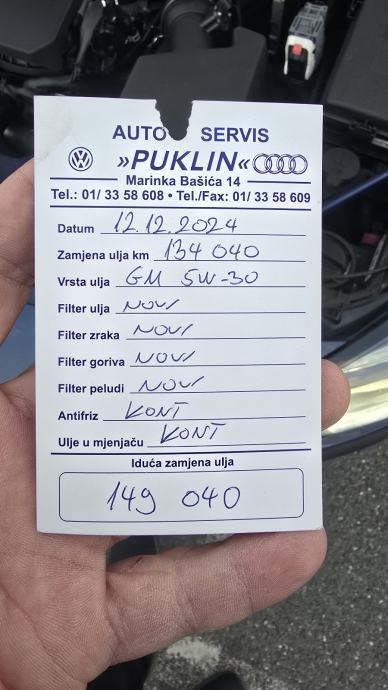 AUTO SERVIS
»PUKLIN«
Marinka Bašića 14
Tel.: 01/ 33 58 608 • Tel./Fax: 01/ 33 58 609
Datum 12.12.2024
Zamjena ulja km 134 040
Vrsta ulja GM 5W-30
Filter ulja NOVI
Filter zraka NOVI
Filter goriva NOVI
Filter peludi NOVI
Antifriz KONT
Ulje u mjenjaču KONT
Iduća zamjena ulja
149 040